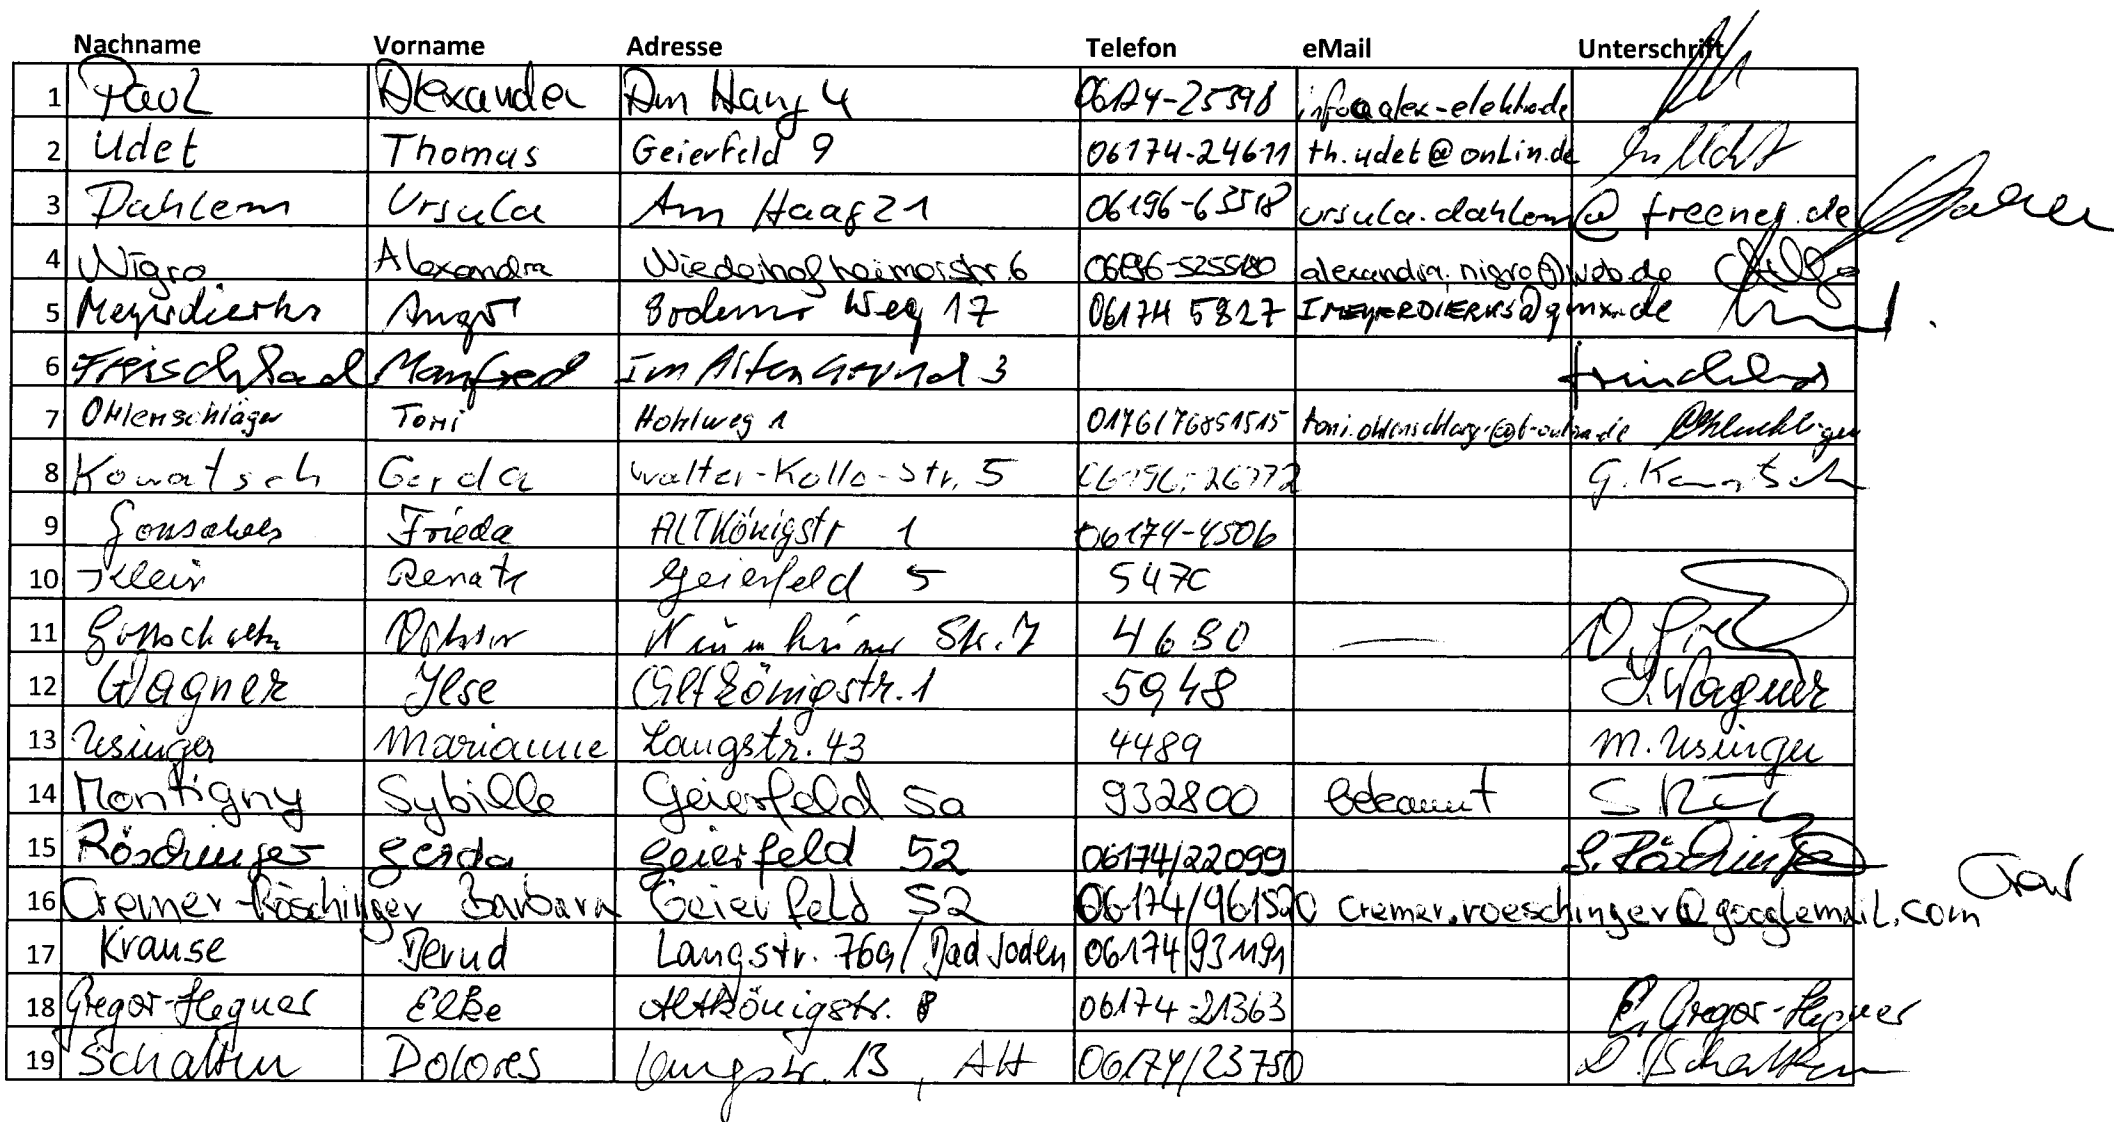 Nachname Vorname Adresse Telefon eMail Unterschrift
1 Paul Alexander Am Hang 4 06174-25598 info@alex-elektro.de
2 Udet Thomas Geierfeld 9 06174-24611 th.udet@onlin.de
3 Dahlem Ursula Am Haag 21 06196-63518 ursula.dahlem@freenet.de
4 Nigro Alexandra 06196-525580 alexandra.nigro@web.de
5 Meyerdierks Weg 17 06174 5827 IMEYERDIERKS@gmx.de
6 Freischlad Manfred Im Alten Grund 3
7 Ohlenschläger Toni Hohlweg 1 0176/76851515
8 Kowatsch Gerda Walter-Kollo-Str. 5 06196-26772 G. Kowatsch
9 Frieda Altkönigstr 1 06174-4506
10 Klein Renate Geierfeld 5 5470
11 Gottschalk Str. 7 4680
12 Wagner Ilse Altkönigstr. 1 5948 I. Wagner
13 Usinger Marianne Langstr. 43 4489 M. Usinger
14 Montigny Sybille Geierfeld 5a 932800 bekannt
15 Röschinger Gerda Geierfeld 52 06174/22099 G. Röschinger
16 Cremer-Röschinger Barbara Geierfeld 52 06174/961520 cremer.roeschinger@googlemail.com
17 Krause Bernd Langstr. 76a / Bad Soden 06174/931191
18 Gregor-Hegner Elke Altkönigstr. 8 06174-21363 E. Gregor-Hegner
19 Dolores Langstr. 13, AH 06174/23750